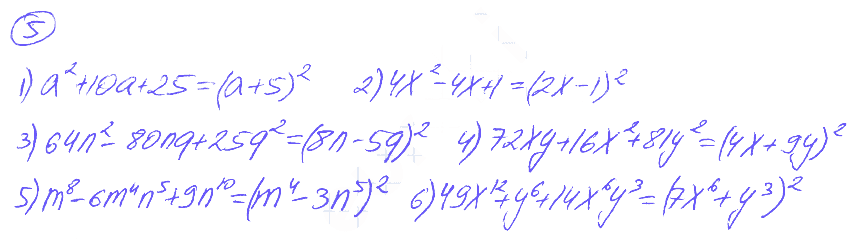 5
1) a²+10a+25=(a+5)² 2) 4x²-4x+1=(2x-1)²
3) 64n²-80nq+25q²=(8n-5q)² 4) 72xy+16x²+81y²=(4x+9y)²
5) m⁸-6m⁴n⁵+9n¹⁰=(m⁴-3n⁵)² 6) 49x¹²+y⁶+14x⁶y³=(7x⁶+y³)²